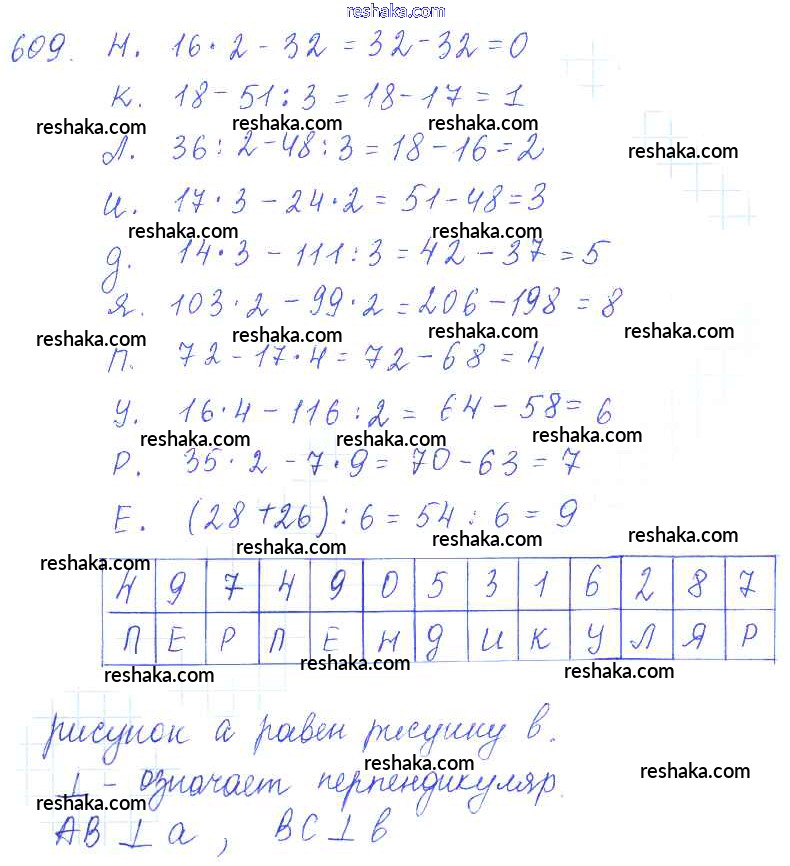 reshaka.com
609. Н. 16·2-32=32-32=0
К. 18-51:3=18-17=1
reshaka.com reshaka.com reshaka.com
Л. 36:2-48:3=18-16=2
reshaka.com
И. 17·3-24·2=51-48=3
reshaka.com reshaka.com reshaka.com
Д. 14·3-111:3=42-37=5
Я. 103·2-99·2=206-198=8
reshaka.com reshaka.com reshaka.com reshaka.com
П. 72-17·4=72-68=4
У. 16·4-116:2=64-58=6
reshaka.com reshaka.com reshaka.com
Р. 35·2-7·9=70-63=7
Е. (28+26):6=54:6=9
reshaka.com reshaka.com reshaka.com
4 9 7 4 9 0 5 3 1 6 2 8 7
П Е Р П Е Н Д И К У Л Я Р
reshaka.com reshaka.com reshaka.com
рисунок а равен рисунку в.
reshaka.com reshaka.com
⊥ - означает перпендикуляр.
reshaka.com reshaka.com
АВ⊥а, ВС⊥в